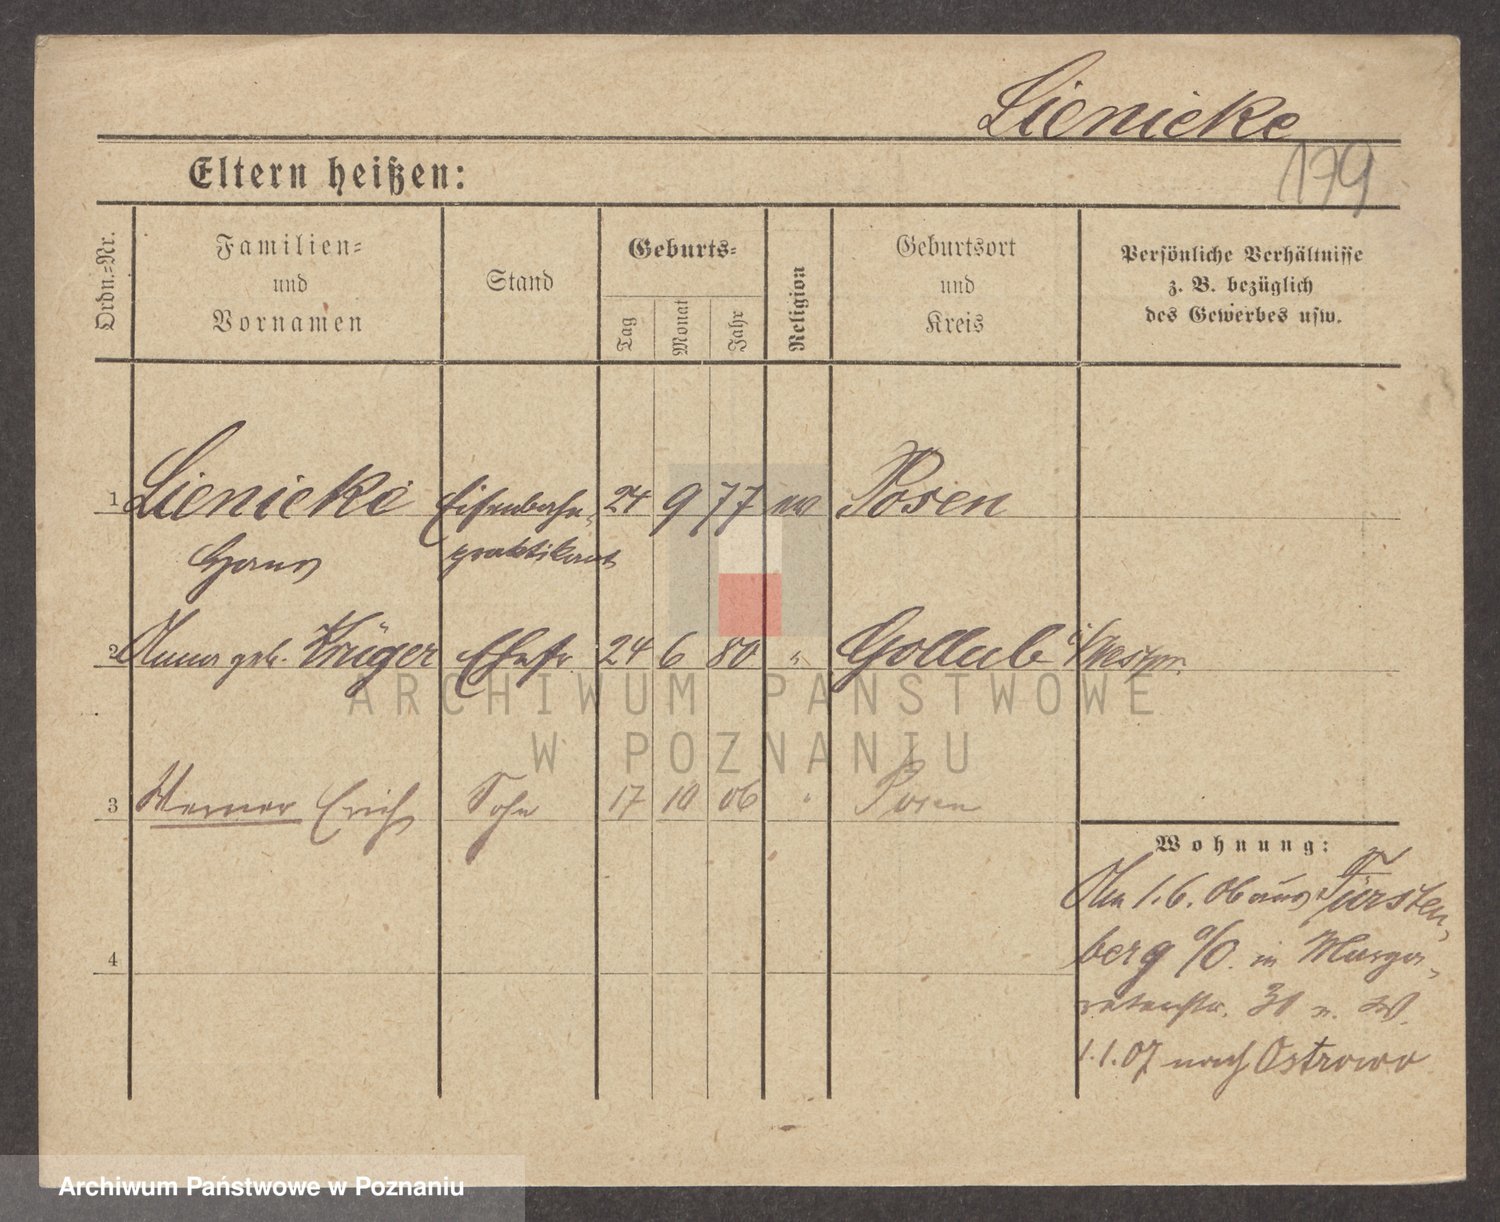 Lienicke
179
Eltern heißen:
Ordn.=Nr.
Familien=
und
Vornamen
Stand
Geburts=
Tag
Monat
Jahr
Religion
Geburtsort
und
Kreis
Persönliche Verhältnisse
z. B. bezüglich
des Gewerbes usw.
1 Lienicke Eisenbahn- 24 9 77 ev Posen
Hans praktikant
2 Anna geb. Krüger Ehefr 24 6 80 " Gollub i/Westpr.
3 Werner Erich Sohn 17 10 06 " Posen
4
Wohnung:
Am 1.6.06 aus Fürsten-
berg a/O. in Marga-
retenstr. 30 n. W.
1.1.07 nach Ostrowo
ARCHIWUM PAŃSTWOWE
W POZNANIU
Archiwum Państwowe w Poznaniu